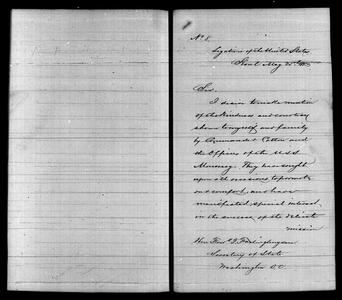 No 8.
Legation of the United States
Seoul May 25th 1883
Sir.
I desire to make mention
of the kindness and courtesy
shown to myself and family
by Commander Cotton and
the Officers of the U.S.S.
Monocacy. They have sought
upon all occasions to promote
our comfort, and have
manifested special interest
in the success of the delicate
mission
Hon Fredk T. Frelinghuysen
Secretary of State
Washington D.C.